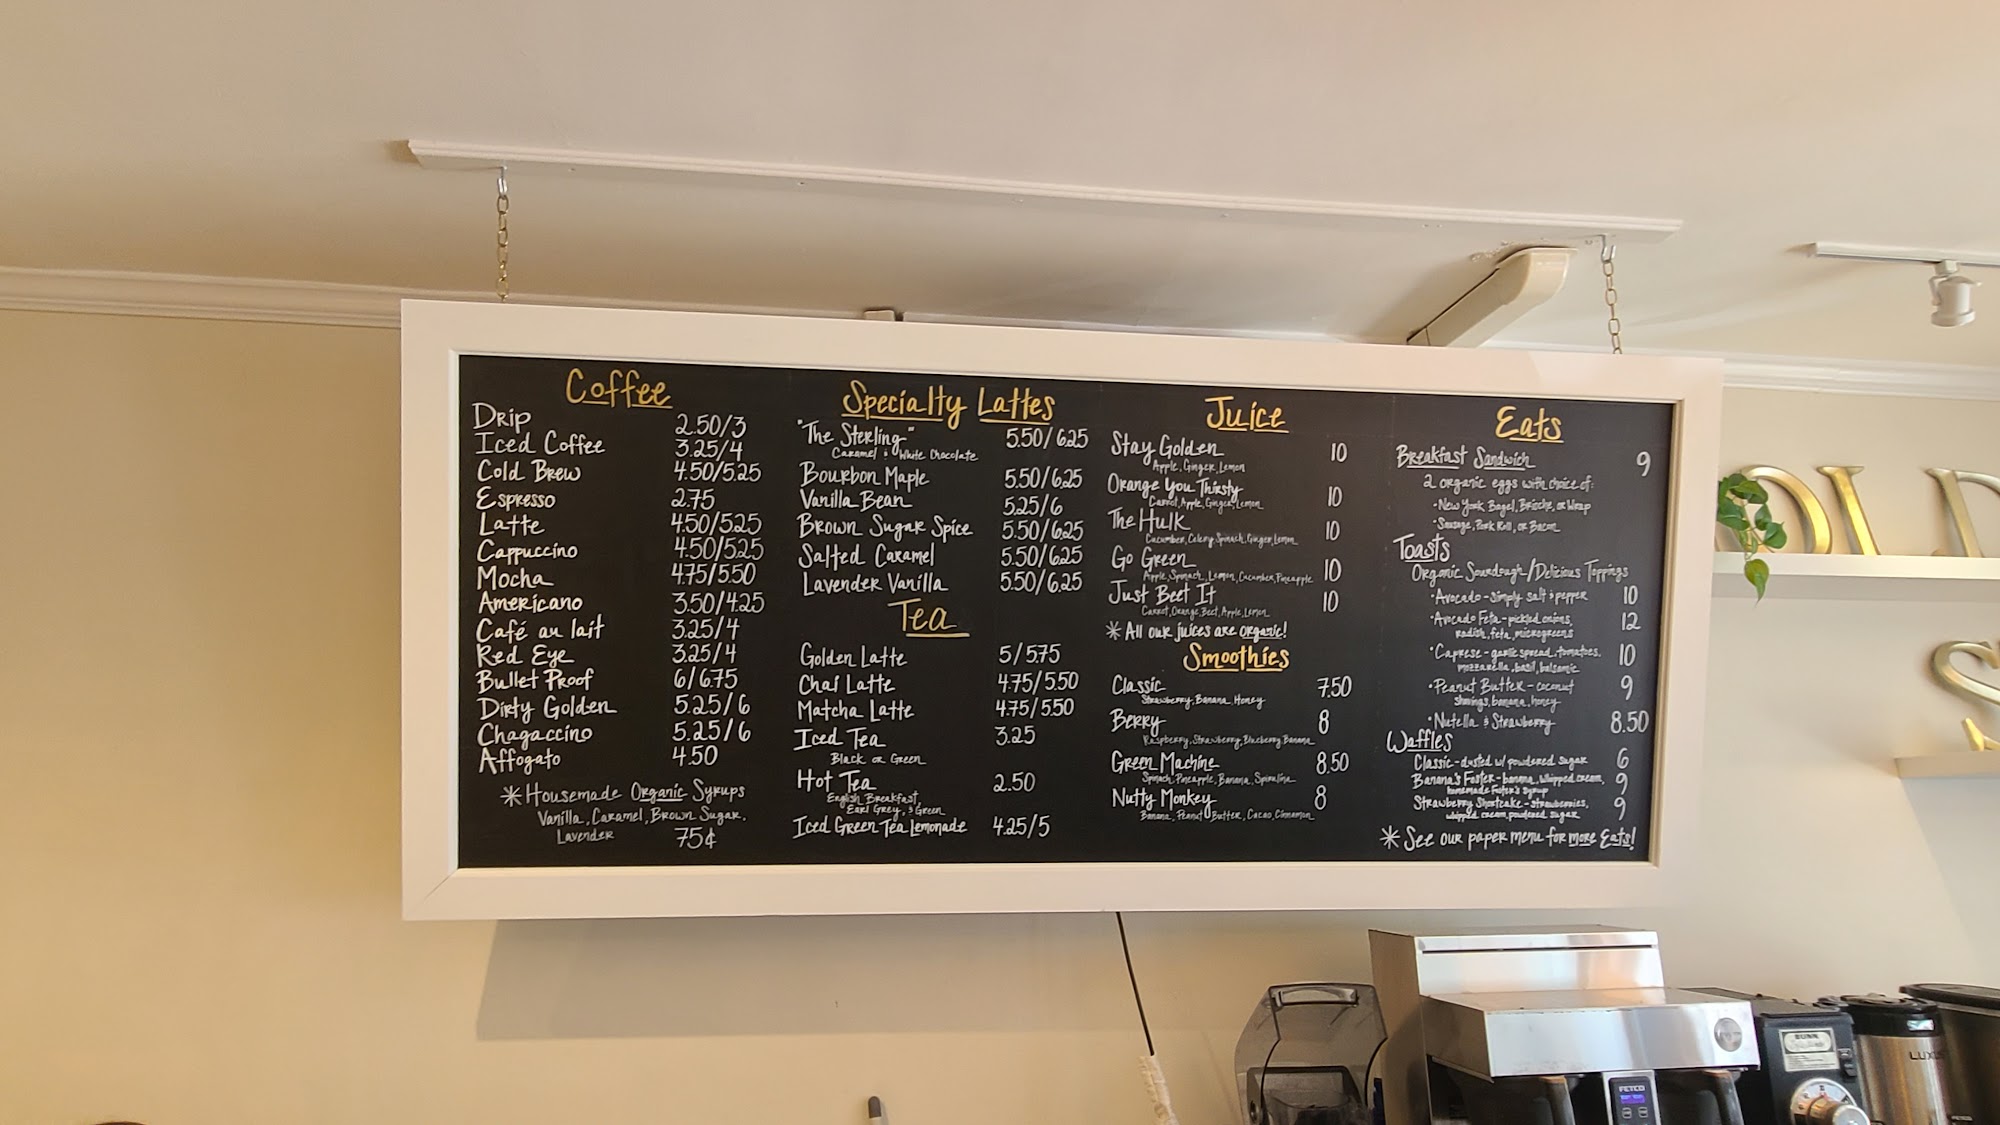 Coffee
Drip 2.50/3
Iced Coffee 3.25/4
Cold Brew 4.50/5.25
Espresso 2.75
Latte 4.50/5.25
Cappuccino 4.50/5.25
Mocha 4.75/5.50
Americano 3.50/4.25
Café au lait 3.25/4
Red Eye 3.25/4
Bullet Proof 6/6.75
Dirty Golden 5.25/6
Chagaccino 5.25/6
Affogato 4.50
*Housemade Organic Syrups
Vanilla, Caramel, Brown Sugar,
Lavender 75¢
Specialty Lattes
"The Sterling" 5.50/6.25
Caramel & White Chocolate
Bourbon Maple 5.50/6.25
Vanilla Bean 5.25/6
Brown Sugar Spice 5.50/6.25
Salted Caramel 5.50/6.25
Lavender Vanilla 5.50/6.25
Tea
Golden Latte 5/5.75
Chai Latte 4.75/5.50
Matcha Latte 4.75/5.50
Iced Tea 3.25
Black or Green
Hot Tea 2.50
English Breakfast,
Earl Grey, & Green
Iced Green Tea Lemonade 4.25/5
Juice
Stay Golden 10
Apple, Ginger, Lemon
Orange You Thirsty 10
Carrot, Apple, Ginger, Lemon
The Hulk 10
Cucumber, Celery, Spinach, Ginger, Lemon
Go Green 10
Apple, Spinach, Lemon, Cucumber, Pineapple
Just Beet It 10
Carrot, Orange, Beet, Apple, Lemon
*All our juices are organic!
Smoothies
Classic 7.50
Strawberry, Banana, Honey
Berry 8
Raspberry, Strawberry, Blueberry, Banana
Green Machine 8.50
Spinach, Pineapple, Banana, Spirulina
Nutty Monkey 8
Banana, Peanut Butter, Cacao, Cinnamon
Eats
Breakfast Sandwich 9
2 organic eggs with choice of:
•New York Bagel, Brioche, or Wrap
•Sausage, Pork Roll, or Bacon
Toasts
Organic Sourdough/Delicious Toppings
•Avocado-simply salt & pepper 10
•Avocado Feta-pickled onions, 12
radish, feta, microgreens
•Caprese-garlic spread, tomatoes, 10
mozzarella, basil, balsamic
•Peanut Butter-coconut 9
shavings, banana, honey
•Nutella & Strawberry 8.50
Waffles
Classic-dusted w/ powdered sugar 6
Banana's Foster-banana, whipped cream, 9
homemade Foster's syrup
Strawberry Shortcake-strawberries, 9
whipped cream, powdered sugar
*See our paper menu for more Eats!
OLD
S
FETCO
BUNN
LUX
FETCO